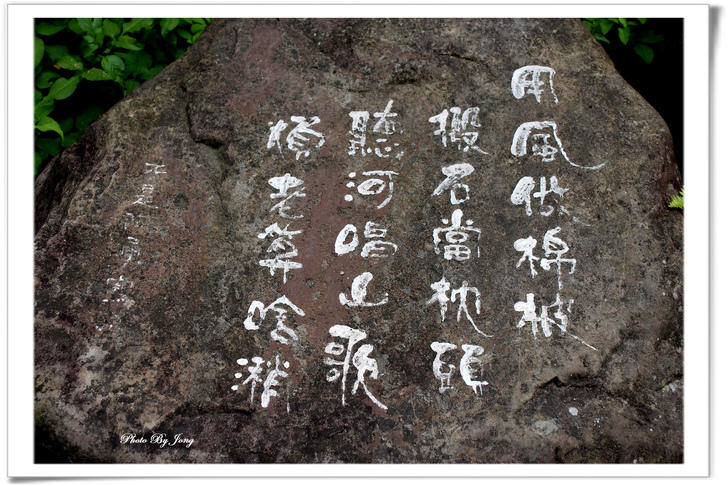 用風做棉被
搬石當枕頭
聽河唱山歌
橋老算啥潲
Photo By Jong